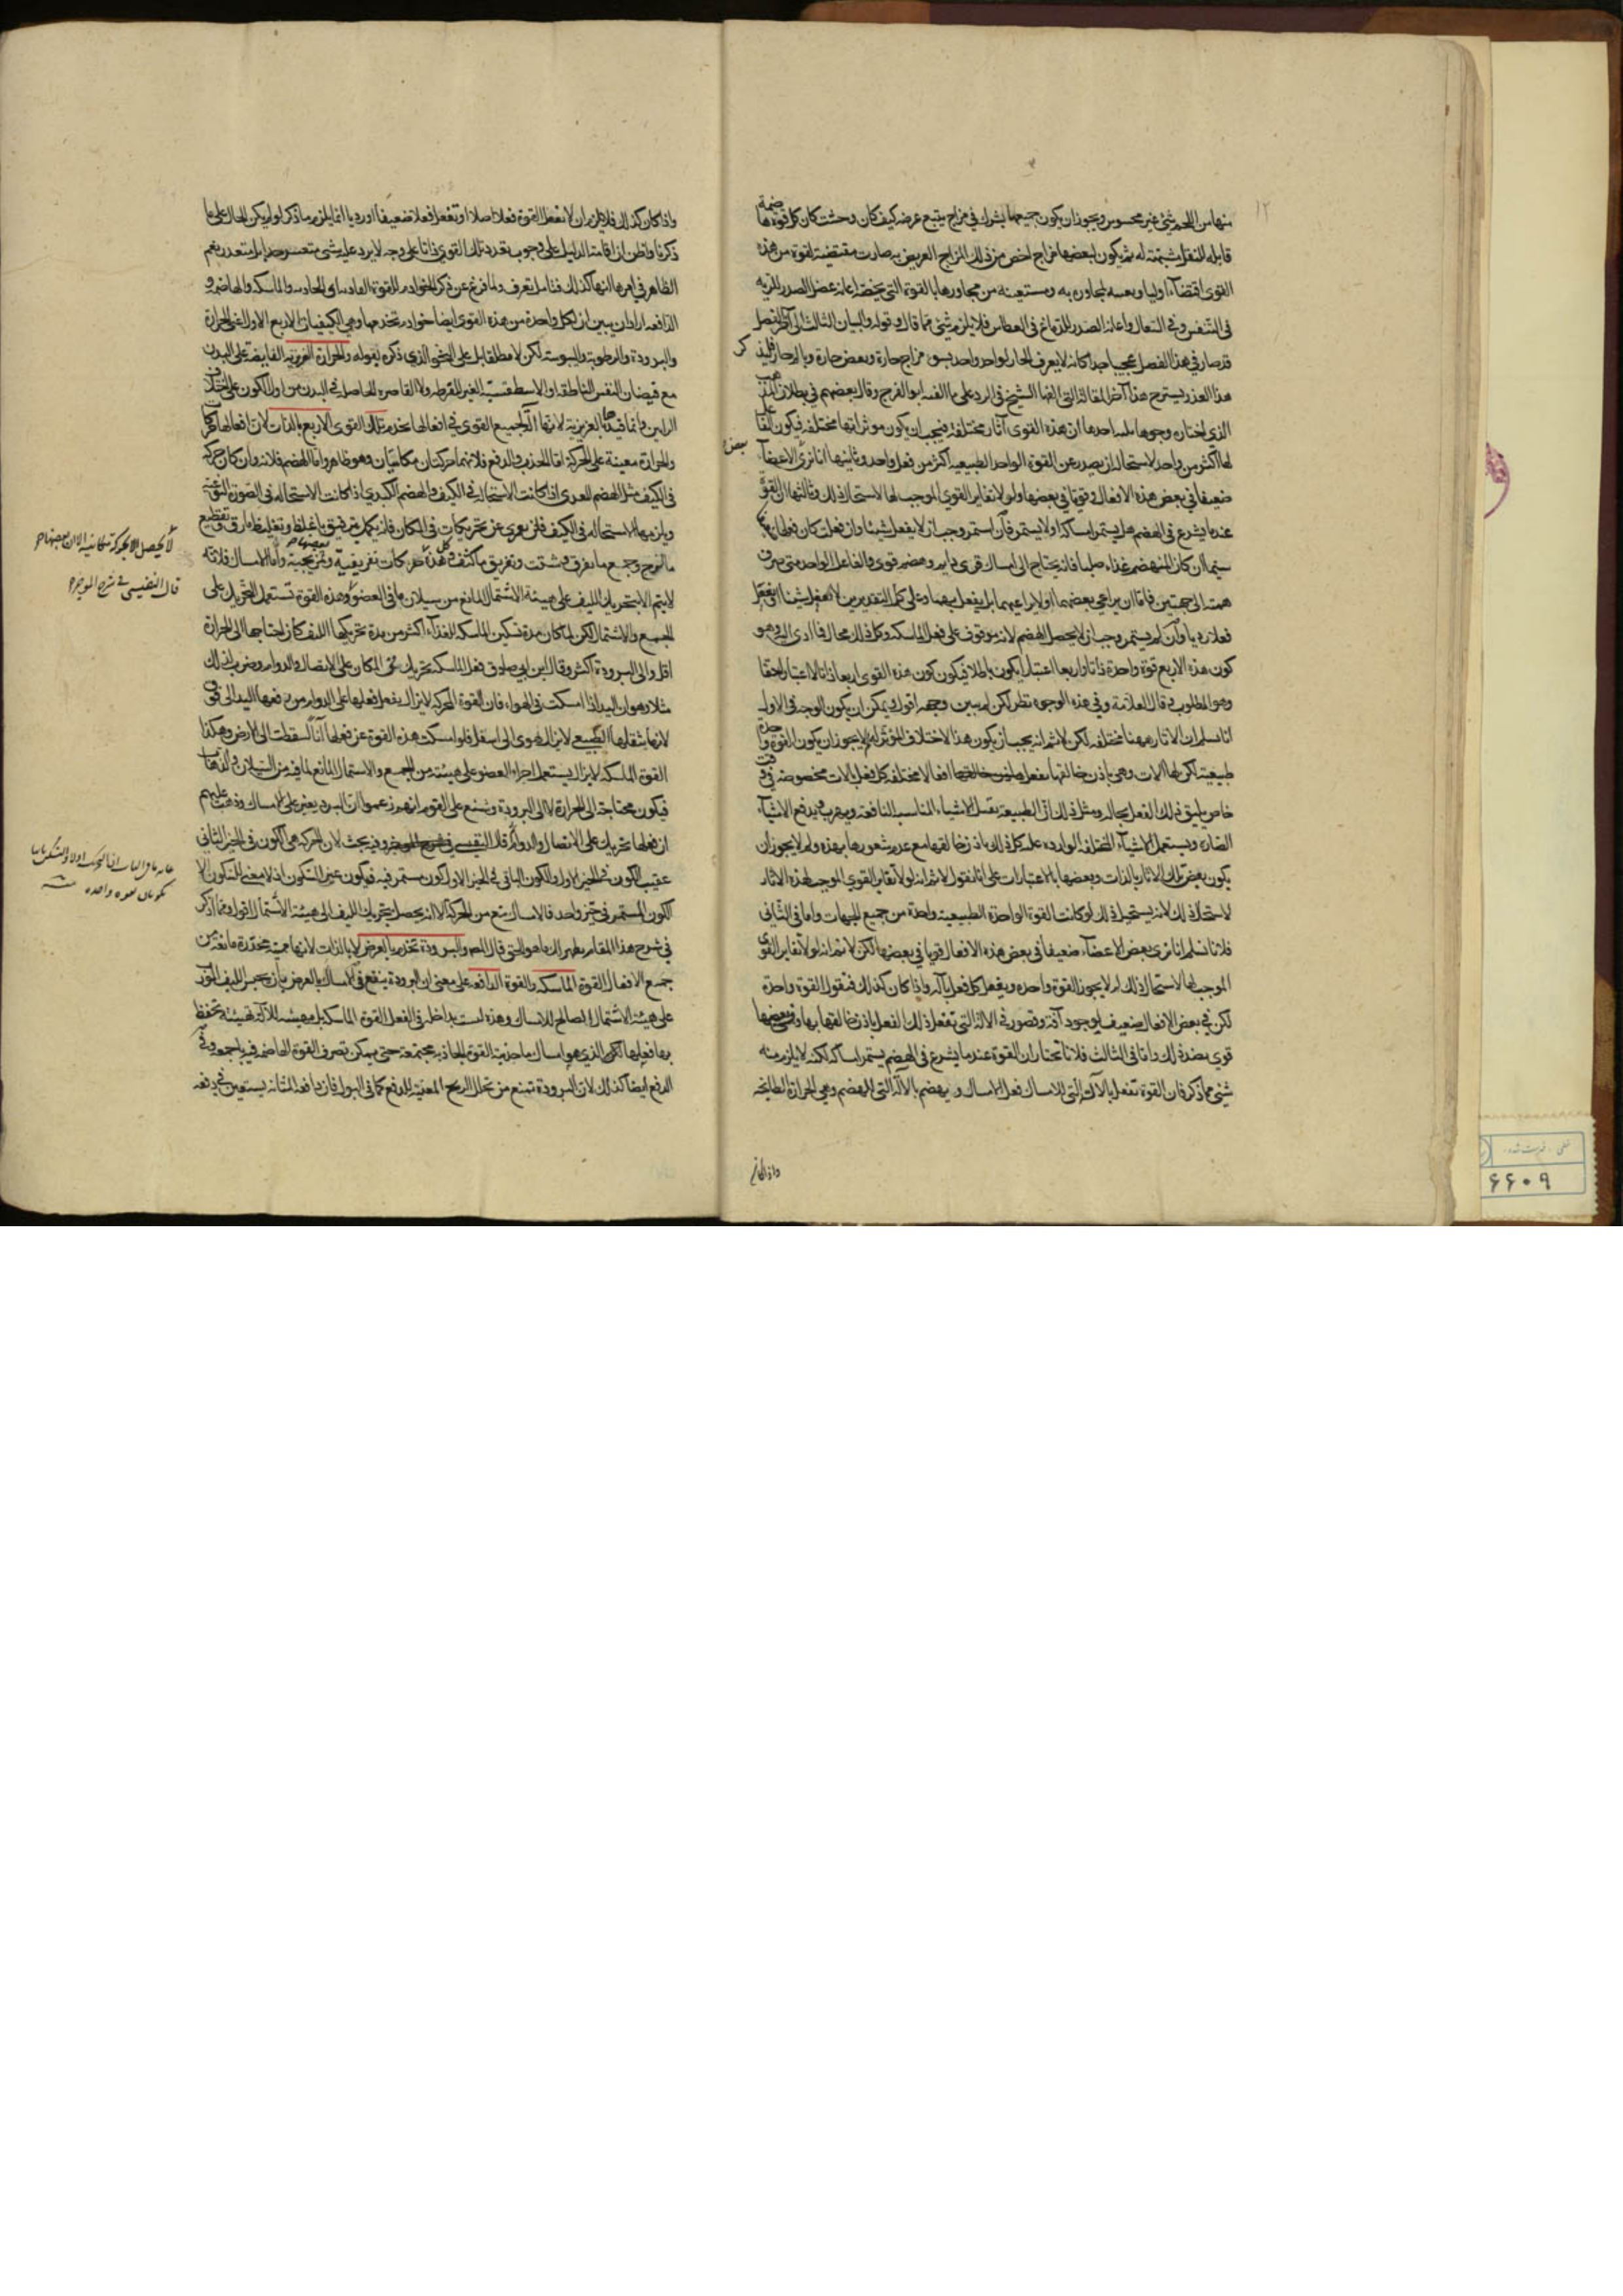 ١٢
منها من اللحم شئ غير محسوس ويجوز ان يكون جميعها يشترك في مزاج يتبع عرضه كيف كان وحيث كان كل قوة
قابله للنفعل شبيهة له ثم يكون لبعضها مزاج اخص من ذلك المزاج العريض به صارت مقتضية لقوة من هذه
القوى اقتضاء اوليا ومستعينة من مجاورها بالقوة التى تخصه اعانه عضل الصدر للريه
فى التنفس وفى السعال واعانه الصدر للدماغ فى العطاس فلا يلزم شئ مما قال وقوله والبيان الثالث الى آخر الفصل
قد صار في هذا الفصل عجيبا جدا كانه لا يعرف الحار لواحد واحد بسوء مزاج حارة وبعض حارة
هذا العذر يستريح هذا آخر المقالة التى الفها الشيخ فى الرد على ما الفه ابو الفرج وقال بعضهم فى بطلان المذهب
الذى اختاره وجوها احدها ان هذه القوى آثار مختلفة فيجب ان يكون موثراتها مختلفه فيكون
لها اكثر من واحد لاستحالة ان يصدر عن القوة الواحد الطبيعيه اكثر من فعل واحد وثانيها انا نرى الاعضاء
ضعيفا في بعض هذه الافعال وقويا في بعضها ولو لا تغاير القوى الموجب لها لاستحال ذلك وثالثها ان القوة
عند ما يشرع فى الهضم هل يستمر امساكه او لا يستمر فان استمر وجب ان لا يفعل شيئا وان فعلت كان فعلها
سيما ان كان المنهضم غذاء صلبا فانه يحتاج الى امساك قوى دايم وهضم قوى والفاعل الواحد متى صرف
همته الى جهتين فاما ان يراعى بعضهما او لا يراعيهما بل يفعل وعلى كلى التقديرين لا يفعل شيئا او يفعل
فعلا رديا وان لم يستمر وجب ان لا يحصل الهضم لانه موقوف على فعل الماسكه وكل ذلك محال فما ادى اليه وهو
كون هذه الاربع قوة واحدة ذاتا واربعا اعتبارا يكون باطلا فيكون كون هذه القوى اربعا ذاتا لا اعتبارا حقا
وهو المطلوب قال العلامة وفى هذه الوجوه نظر لكن لم يبين وجهه اقول يمكن ان يكون الوجه فى الاول
انا نسلم ان الاثار ههنا مختلفه لكن لا نسلم انه يجب ان يكون هذا الاختلاف المؤثر لم لا يجوز ان يكون القوة واحدة
طبيعية لكن لها آلات وهى باذن خالقها تفعل افعالا مختلفه كل فعل بالات مخصوصه فى وقت
خاص يليق ذلك الفعل بحاله ومثل ذلك ان الطبيعة تقبل الاشياء المناسب النافعه ويهرب ويدفع الاشياء
الضاره ويستعمل الاشياء المختلفه الوارده عليه كل ذلك باذن خالقها مع عدم شعورها بهذه ولم لا يجوز ان
يكون بعض تلك الاثار بالذات وبعضها بالاعتبارات على انا نقول لا نسلم انه لو لا تغاير القوى الموجب لهذه الاثار
لاستحال ذلك لانه يستحيل ذلك لو كانت القوة الواحدة الطبيعية واحدة من جميع الجهات واما فى الثانى
فلانا نسلم انا نرى بعض الاعضاء ضعيفا فى بعض هذه الافعال قويا فى بعضها لكن لا نسلم انه لو لا تغاير القوى
الموجب لها لاستحال ذلك لم لا يجوز القوة واحده ويفعل كل فعل بآله واذا كان كذلك فنقول القوة واحدة
لكن فى بعض الافعال ضعيف لوجود آفة وقصور فى الالة التى تفعل ذلك الفعل باذن خالقها بها وفى بعضها
قوى بضد ذلك واما فى الثالث فلانا نختار ان القوة عند ما يشرع فى الهضم يستمر امساكه لكنه لا يلزم منه
شئ مما ذكر فان القوة تفعل بالآلة التى للامساك فعل الامساك ويهضم بالآلة التى للهضم وهى الحرارة الطابخه
واذا كان
واذا كان كذلك فلا يلزم ان لا تفعل القوة فعلا اصلا او تفعل فعلا ضعيفا او رديا انما يلزم ما ذكر لو لم يكن الحال على ما
ذكرنا واظن ان اقامة الدليل على وجوب تعدد تلك القوى ذاتا على وجه لا يرد عليه شئ متعسر جدا بل متعذر نعم
الظاهر فى امرها انها كذلك فتامل تعرف ولما فرغ عن ذكر الخوادم للقوة الغاذيه اى الجاذبه والماسكه والهاضمه و
الدافعه اراد ان يبين ان لكل واحدة من هذه القوى ايضا خوادم تخدمها وهى الكيفيات الاربع الاول اعنى الحرارة
والبرودة والرطوبة واليبوسة لكن لا مطلقا بل على النحو الذى ذكره بقوله والحرارة الغريزيه الفايضة على البدن
مع فيضان النفس الناطقه والاسطقسية الغير المفرطه ولا القاصره الحاصله فى البدن من اول الكون على اختلاف
الراين وانما قيدها بالغريزية لانها آلة لجميع القوى فى افعالها تخدم تلك القوى الاربع بالذات لان افعالها
والحرارة معينة على الحركة اما الجذب والدفع فلانهما حركتان مكانيتان وهو ظاهر واما الهضم فلانه وان كان حركة
فى الكيف مثل الهضم المعدى اذا كانت الاستحالة فى الكيف والهضم الكبدى اذا كانت الاستحاله فى الصورة النوعية
ويلزمها الاستحاله فى الكيف فلن يعرى عن تحريكات فى المكان فانه يكمل بترقيق ما غلظ وتغليظ ما رق وتقطيع
ما لزج وجمع ما تفرق وتشتت وتفريق ما كثف وكل هذه حركات تفريقية وتمزيجية واما الامساك فلانه
لا يتم الا بتحريك الليف على هيئة الاشتمال المانع من سيلان ما فى العضو وهذه القوة تستعمل التحريك على
الجمع والاشتمال لكن لما كان مدة تسكين الماسكه للغذاء اكثر من مدة تحريكها الليف كان احتياجها الى الحرارة
اقل والى البرودة اكثر وقال ابن ابى صادق فعل الماسكة تحريك نحو المكان على الاتصال والدوام وضرب لذلك
مثلا وهو ان اليد اذا امسكت فى الهواء فان القوة المحركه لا يزال يفعل فعلها على الدوام من رفعها اليد الى فوق
لانها بثقلها الطبيعى لا يزال تهوى الى اسفل فلو امسكت هذه القوة عن فعلها آنا لسقطت الى الارض وهكذا
القوة الماسكه لا يزال يستعمل اجزاء العضو على هيئة من الجمع والاشتمال المانع لما فيه من السيلان
فيكون محتاجة الى الحرارة لا الى البرودة وشنع على القوم انهم زعموا ان البرد يعين على الامساك وذهب عليهم
ان فعلها تحريك على الاتصال والدوام قال النفيسى فى شرح الموجز وفيه بحث لان الحركه هى الكون فى الحيز الثانى
عقيب الكون فى الحيز الاول والكون الباقى فى الحيز الاول كون مستمر فيه فيكون عين السكون اذ لا معنى للسكون الا
الكون المستمر فى حيز واحد فالامساك يمنع من الحركة الا انه يحصل بتحريك الليف الى هيئة الاشتمال اقول ومما ذكر
فى شرح هذا المقام يظهر لك ما هو الحق قال المص والبرودة تخدم بالعرض لا بالذات لانها مميته مخدرة مانعة من
جميع الافعال القوة الماسكه والقوة الدافعه على معنى ان البرودة ينفع فى الامساك بالعرض بان يحبس الليف المورب
على هيئة الاشتمال الصالح للامساك وهذه ليست بداخله فى الفعل القوة الماسكه بل مهيئه للآلة تهيئة تحفظ
بها فعلها الذى هو امساك ما جذبته القوة الجاذبه مجتمعة حتى يمكن تصرف القوة الهاضمه فيه باجمعه وفى
الدفع ايضا كذلك لان البرودة تمنع من تحلل الريح المعينة للدفع كما فى البول فان دافعه المثانه يستعين فى دفعه
لا يحصل الا بحركة مكانية
قال النفيسى فى شرح الموجز
٦٦٠٩